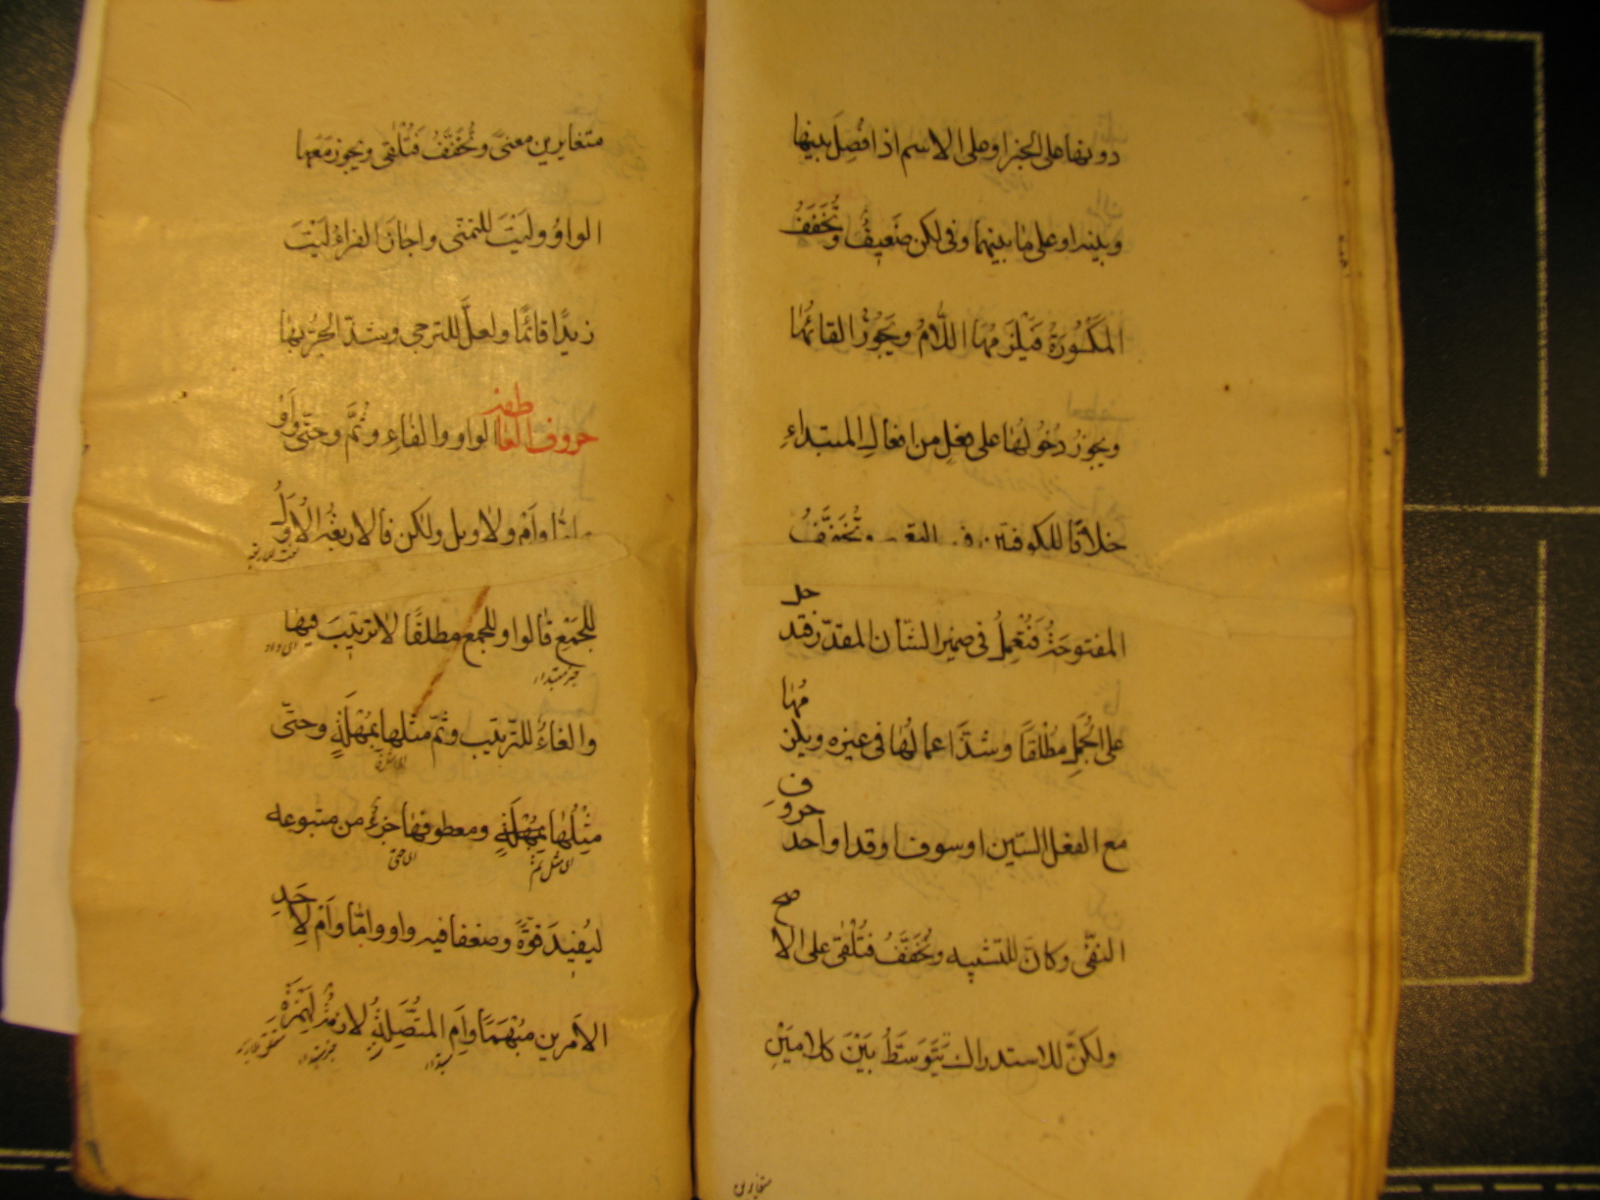 دونها على الخبر او على الاسم اذا فصل بينها
وبينه او على ما بينهما وفى لكن ضَعيفٌ وتُخَفَّفُ
المكسُورَةُ فَيَلْزَمُهَا اللّامُ ويَجُوْزُ الغائها
ويجوز دُخُولُها على فعل من افعالِ المبتداءِ
خلافًا للكوفيّين فى التعميم وتُخَفَّفُ
المفتوحَةُ فَتُعْمِلُ فى ضمير الشّأن المقدّر فتدخل
على الجُمَلِ مطْلقًا وشذّ اعمالُها فى غيره ويلزمها
مع الفعل السّين او سوف او قد او احد حروف
النّفى وكانّ للتشبيه وتُخَفَّفُ فتُلْغى على الا صح
ولكنّ للاستدراك يَتَوَسّطُ بَيْنَ كلامَيْنِ
متغايرين
متغايرين معنىً وتُخَفَّفُ فَتُلْغى ويجوز مَعَها
الواوُ ولَيْتَ للتمنّى واجاز الفراءُ لَيْتَ
زيدًا قائمًا ولعلَّ للترجى وشذّ الجرُّ بها
حروف العاطفة الواو والفاءِ وثُمَّ وحتّى وَاَوْ
وامّا واَمْ ولا وبل ولكن فالاربعُة الاوَلُ
للجَمْعِ فالواو للجمع مطلقًا لا ترتيبَ فيها
خبر مبتداء
والفاءُ للتّرتيب وثمّ مثلها بمُهْلَةٍ وحتّى
مثْلُها بمُهْلَةٍ ومعطوفها جزءٌ من متبوعه
ليُفيدَ قوّةً وضعفا فيه واو وامّا واَمْ لِاَحَدِ
الاَمرين مُبْهَمًا واَم المتُّصِلةُ لازمةٌ لِهَمْزَةِ